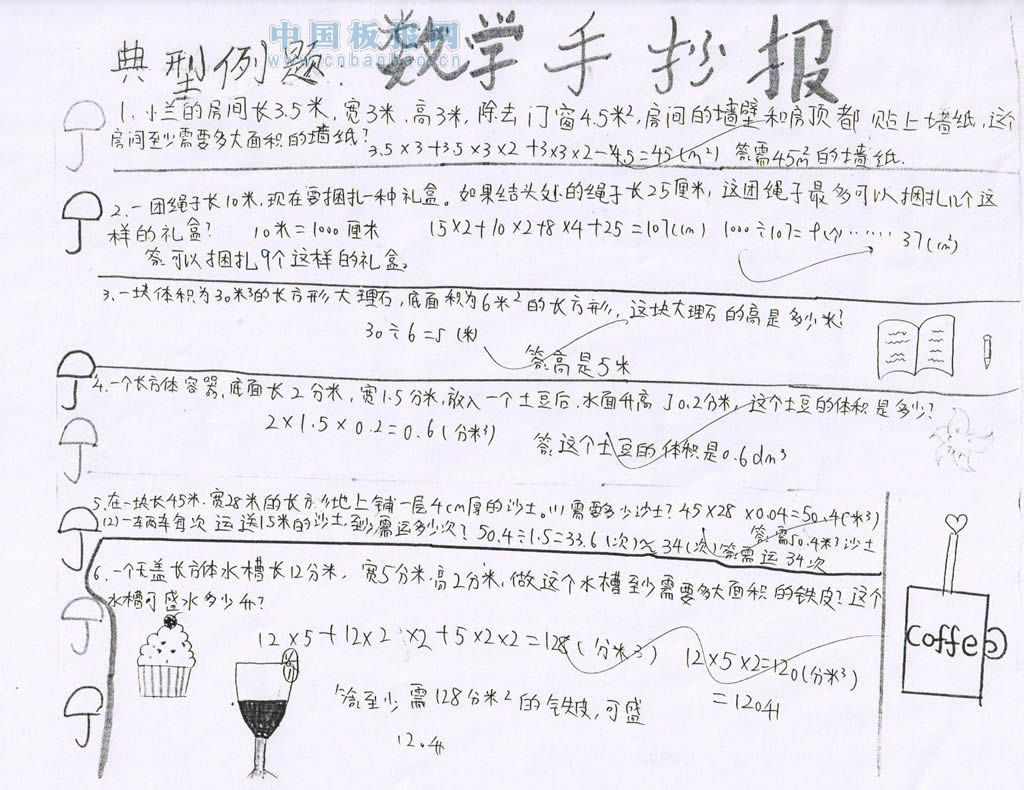 中国板报网
www.cnbanbao.cn
典型例题. 数学手抄报
1. 小兰的房间长3.5米,宽3米,高3米,除去门窗4.5米²,房间的墙壁和房顶都贴上墙纸,这个
房间至少需要多大面积的墙纸?
3.5×3+3.5×3×2+3×3×2-4.5=45(m²) 答:需45m²的墙纸.
2.一团绳子长10米,现在要捆扎一种礼盒。如果结头处的绳子长25厘米,这团绳子最多可以捆扎几个这
样的礼盒? 10米=1000厘米 15×2+10×2+8×4+25=107(cm) 1000÷107=9(个)……37(cm²)
答:可以捆扎9个这样的礼盒。
3.一块体积为30米³的长方形大理石,底面积为6米²的长方形,这块大理石的高是多少米?
30÷6=5(米)
答:高是5米
4.一个长方体容器,底面长2分米,宽1.5分米,放入一个土豆后,水面升高了0.2分米,这个土豆的体积是多少?
2×1.5×0.2=0.6(分米³)
答:这个土豆的体积是0.6dm³
5.在一块长45米.宽28米的长方形地上铺一层4cm厚的沙土。(1)需要多少沙土? 45×28×0.04=50.4(米³)
答:需50.4米³沙土
(2)一车每次运送1.5米的沙土,至少需运多少次? 50.4÷1.5=33.6(次)≈34(次) 答:需运34次
6.一个无盖长方体水槽长12分米,宽5分米.高2分米,做这个水槽至少需要多大面积的铁皮?这个
水槽可盛水多少升?
12×5+12×2×2+5×2×2=128(分米3) 12×5×2=120(分米³)
=120升
答:至少需128分米²的铁皮,可盛
12.升
Coffee